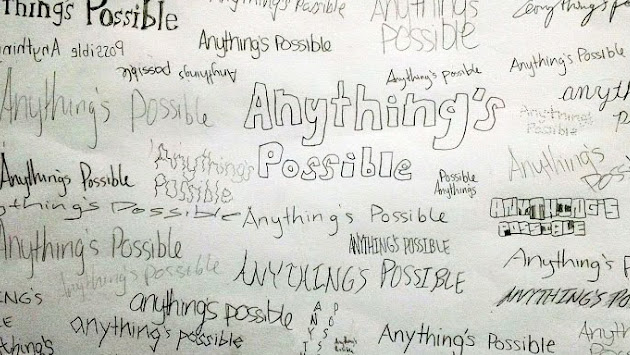 things Possible
Anything's Possible
Anything's
Possible
everything's po
Possible Anythin
Anything's Possible
Anything's possible
Anything's possible
Anything's Possible
Anything's Possible
Anything's
Possible
anyth
Anything's
Possible
Anything's Possible
Anything's
Possible
Possible
Anythings
Anything's
possible
ything's Possible
Anything's Possible
ANYTHING'S
POSSIBLE
Anything's Possible
ANYTHING'S POSSIBLE
Anything's P
Anything's Possible
ANYTHING'S POSSIBLE
ANYTHING'S POS
NG'S
LE
anything's possible
anything's possible
Anything's Possible
things